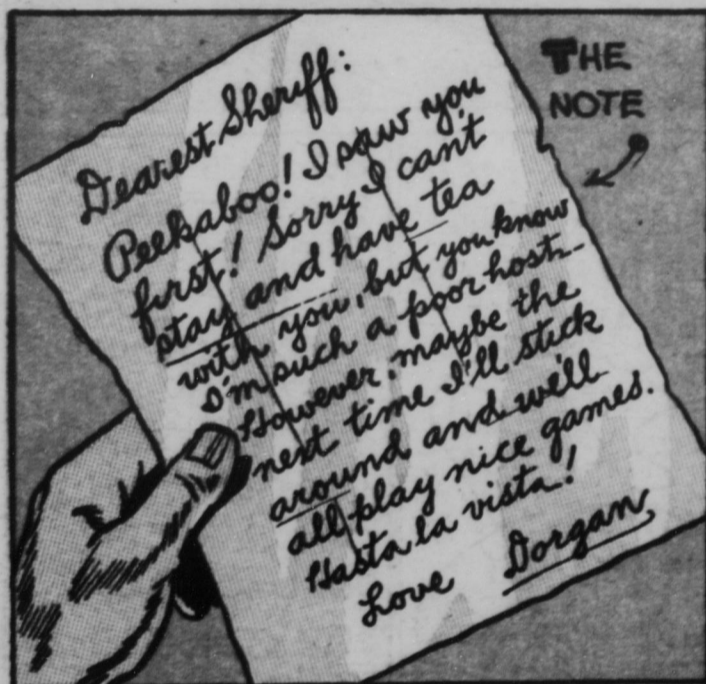 THE
NOTE
Dearest Sheriff:
Peekaboo! I saw you
first! Sorry I can't
stay and have tea
with you, but you know
I'm such a poor host--
However, maybe the
next time I'll stick
around and we'll
all play nice games.
Hasta la vista!
Love Dorgan